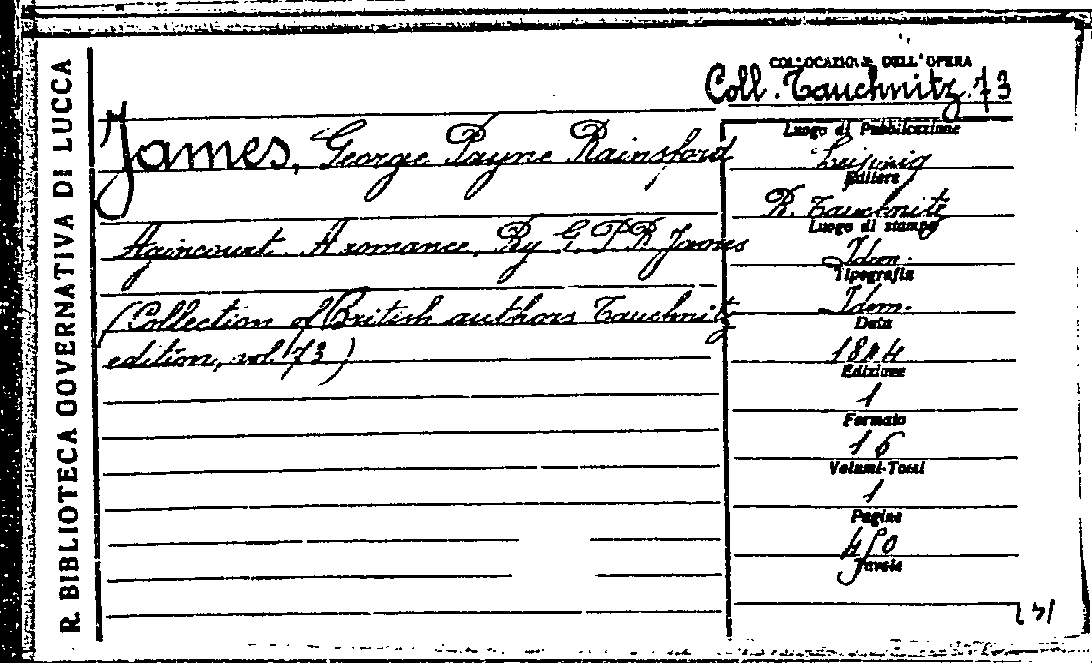 R. BIBLIOTECA GOVERNATIVA DI LUCCA
COLLOCAZIONE DELL'OPERA
Coll. Tauchnitz. 73
James, George Payne Rainsford
Agincourt. A romance. By G. P. R. James
(Collection of British authors Tauchnitz
edition, vol. 73)
Luogo di Pubblicazione
Leipzig
Editore
B. Tauchnitz
Luogo di stampa
Idem.
Tipografia
Idem.
Data
1844
Edizione
1
Formato
16
Volumi-Tomi
1
Pagine
450
Tavole